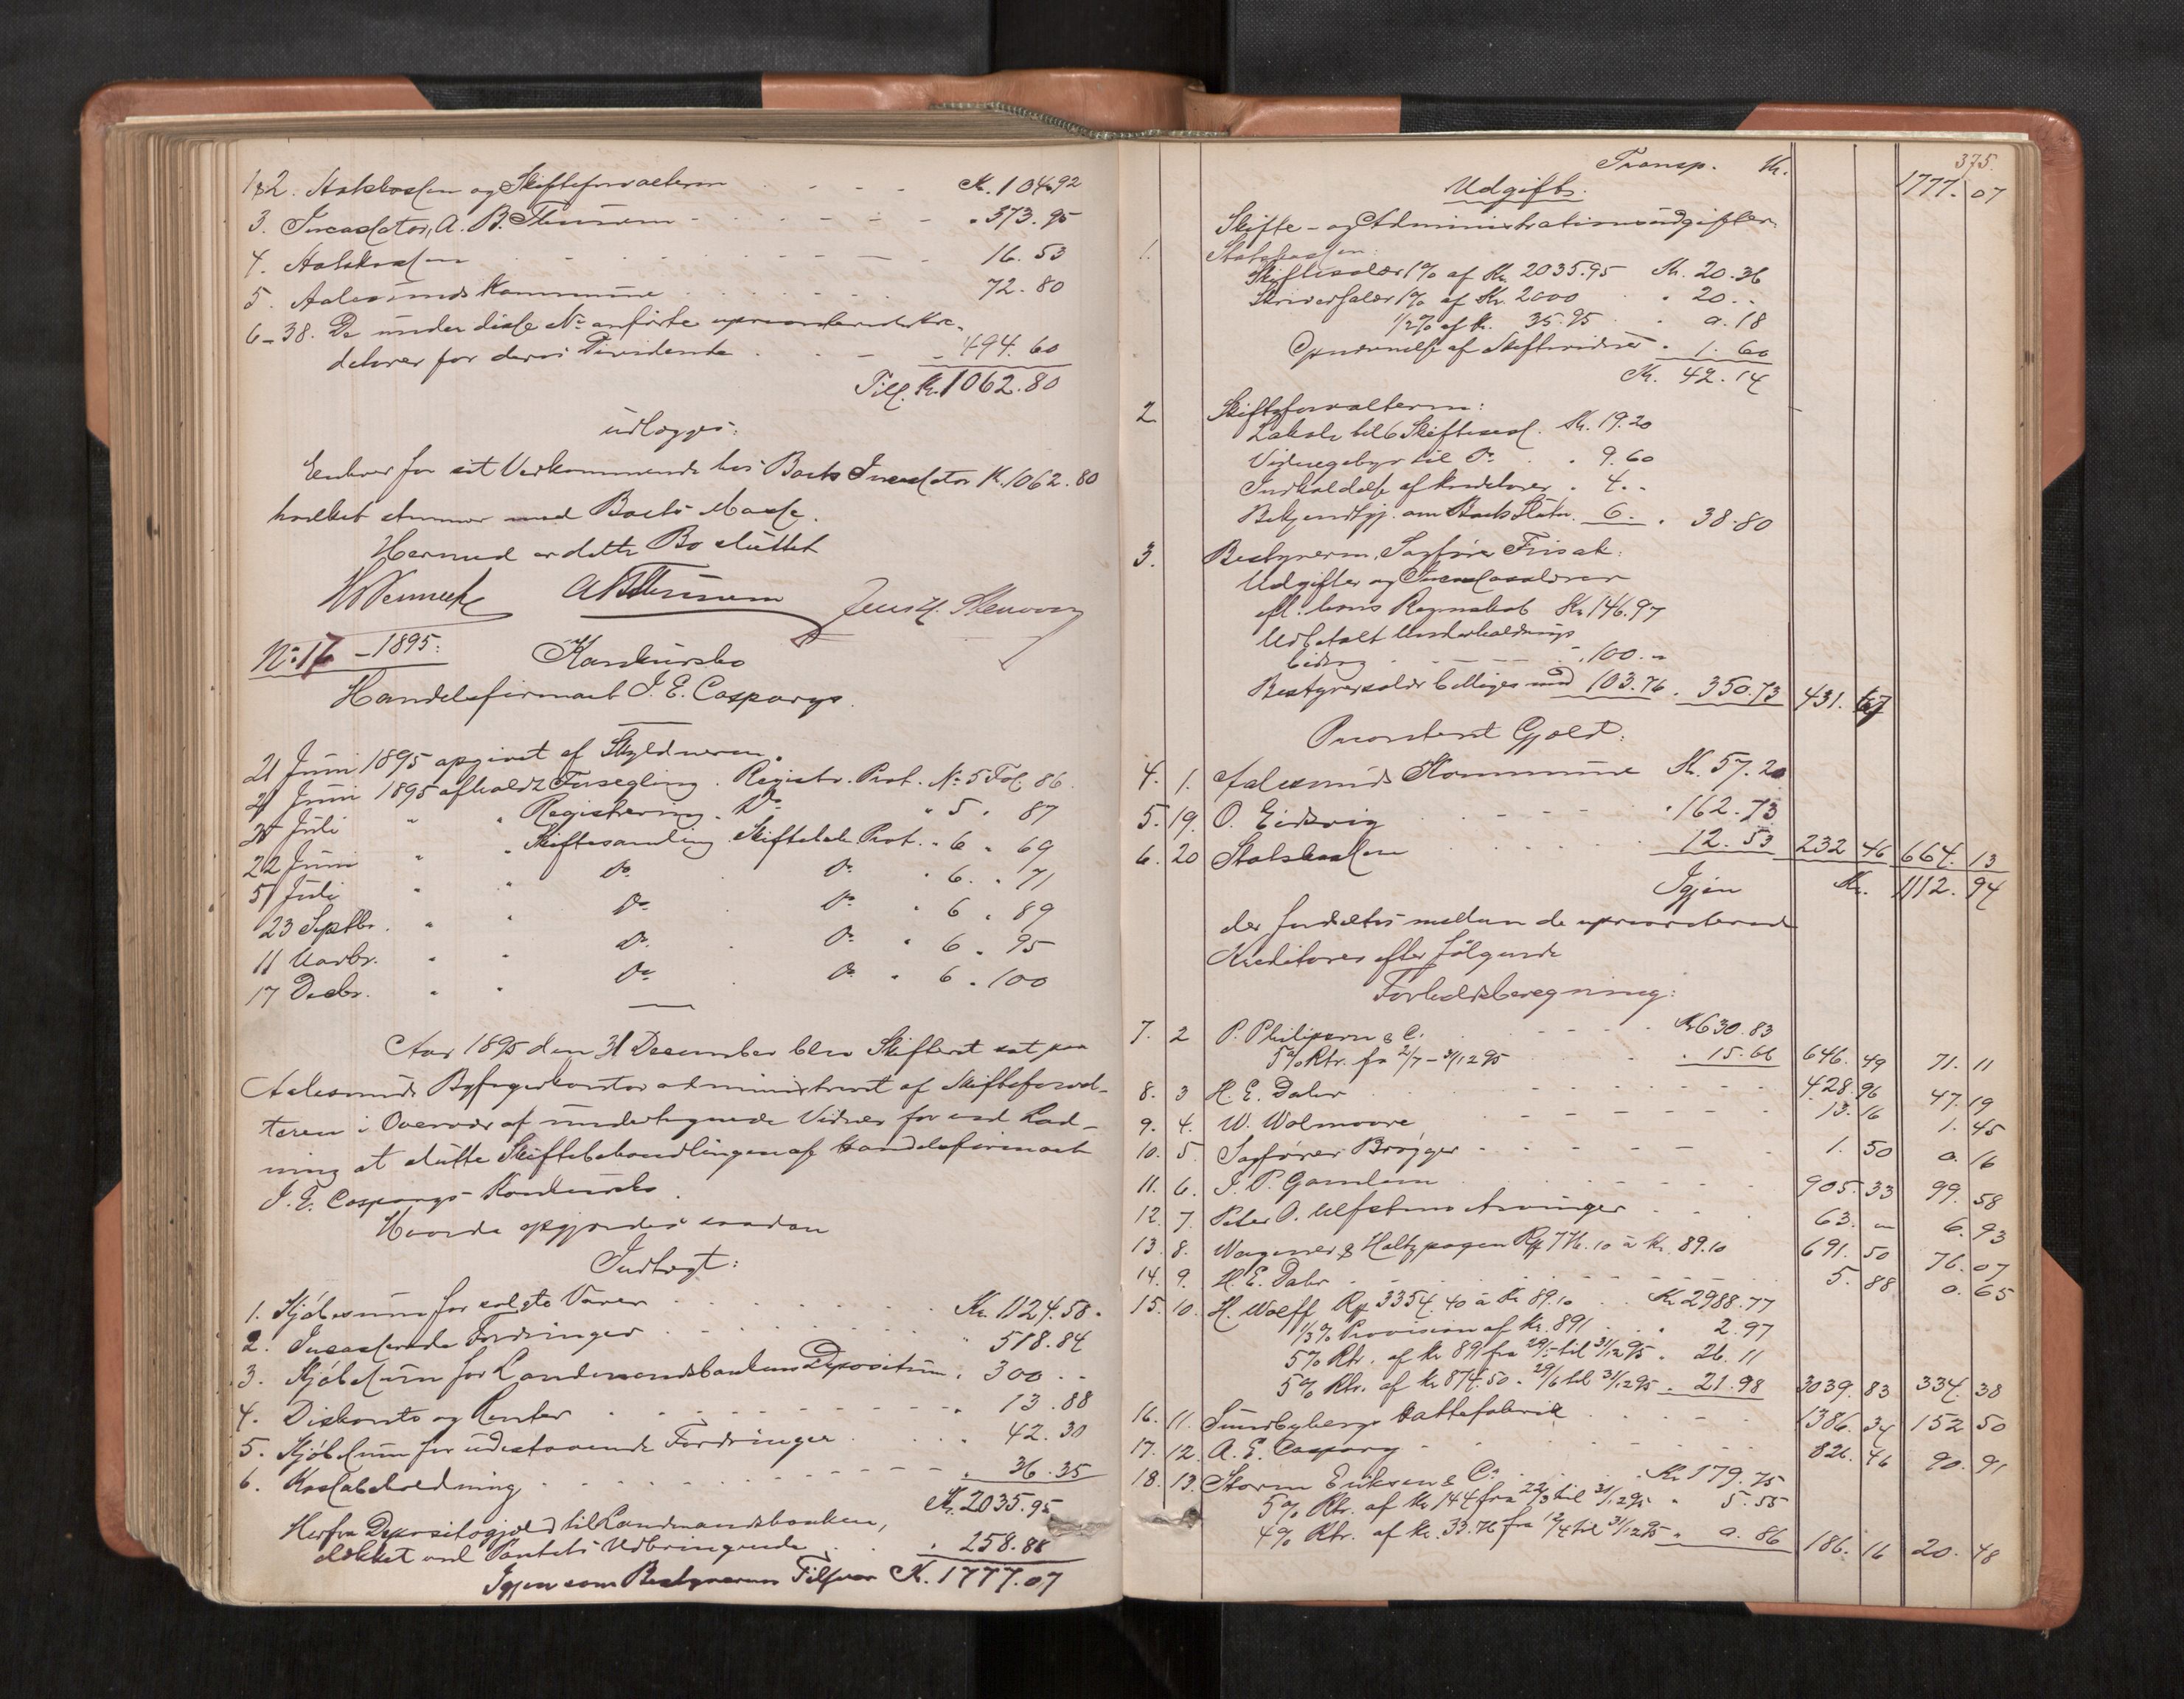 1&2. Statskassen og Skifteforvalteren Kr. 104.92
3. Incassator, A. B. Thunem " 373.95
4. Statskassen 16.53
5. Aalesunds Kommune 72.80
6-38. De under disse No anførte uprioriterede Kre-
ditorer for deres Dividende 494.60
Tils. Kr. 1062.80
udlægges:
Enhver for sit Vedkommende hos Boets Incassator Kr. 1062.80
hvilket stemmer med Boets Masse.
Hermed er dette Bo sluttet
No 16 - 1895:
Konkursbo
Handelsfirmaet J. E. Casparys.
21 Juni 1895 opgivet af Skyldneren.
21 Juni 1895 afholdt Forsegling. Registr. Prot. No 5 Fol 86.
Juli " " Registrering. Do " 5 " 87
22 Juni " " Skiftesamling Skiftedele Prot. " 6 " 69
5 Juli " " Do Do " 6 " 71
23 Septbr. " " Do Do " 6 " 89
11 Novbr. " " Do Do " 6 " 95
17 Decbr. " " Do Do " 6 " 100
Aar 1895 den 31 December blev Skifteret sat paa
Aalesunds Byfogedkontor administreret af Skifteforval-
teren i Overvær af undertegnede Vidner for ved Lod-
ning at slutte Skiftebehandlingen af Handelsfirmaet
J. E. Casparys Konkursbo.
Hvorda opgjordes saadan
Indtægt:
1. Kjøbesum for solgte Varer Kr. 1124.58.
2. Incasserede Fordringer " 518.84
3. Kjøbesum for Landmandsbankens Depositum " 300. -
4. Diskonto og Renter " 13.88
5. Kjøbesum for udestaaende Fordringer " 42.30
6. Kassabeholdning " 36.35
Kr. 2035.95
Herfra Depositogjæld til Landmandsbanken,
dækket ved Pantets Udbringende " 258.88
Igjen som Bestyrerens Tilsvar Kr. 1777.07
375.
Transp. Kr. 1777.07
Udgift:
Skifte- og Administrationsudgifter
1. Statskassen
Skiftesalær 1% af Kr. 2035.95 Kr. 20.36
Skriversalær 1% af Kr. 2000 " 20. -
1/2% af Kr. 35.95 " 0.18
Opnævnelse af Skiftevidner " 1.60
Kr. 42.14
2 Skifteforvalteren:
til 6 Skiftesaml. Kr. 19.20
Vidnegebyr til Do " 9.60
Indkaldelse af Kreditorer " 4. -
Bekjendtgj. om Boets Slutn. 6. " 38.80
3. Bestyreren, Sagfører Frisak:
Udgifter og Incassosalærer
efl. hans Regnskab Kr. 146.97
Udbetalt Underholdnings
bidrag " 100. -
Bestyrersalær billiges med 103.76 " 350.73 431.67
Prioriteret Gjæld:
4. 1. Aalesunds Kommune Kr. 57.20
5. 19. O. Eidsvig " 162.73
6. 20 Statskassen 12.53 232 46 664.13
Igjen Kr. 1112.94
der fordeles mellem de uprioriterede
Kreditorer efter følgende
Forholdsberegning:
7. 2 P. Philipson & C. Kr 630.83
5% Rtr. fra 2/7 - 31/12 95 " 15.66 646.49 71.11
8. 3 H. E. Dahr 428.96 47.19
9. 4. W. Wolmoore 13.16 1.45
10. 5. Sagfører Brøgger 1.50 0.16
11. 6. J. P. Gamlem 905.33 99.58
12. 7. Peter O. Ulfstens Arvinger 63. - 6.93
13. 8. Wagener & Holtzhagen Rp 776.10 à Kr. 89.10 691.50 76.07
14. 9. H. E. Dahr 5.88 0.65
15. 10. H. Wolff Rp 3354.40 à Kr 89.10 Kr 2988.77
1/3% Provision af Kr. 891 " 2.97
5% Rtr. af Kr 891 fra 29/5 til 31/12 95 " 26.11
5% Rtr. af Kr 874.50 " 29/6 til 31/12 95 " 21.98 3039.83 334.38
16. 11. Sundbybergs Hattefabrik 1386.34 152 50
17. 12. A. E. Caspary 826.46 90.91
18. 13. Storm Eriksen & Co Kr 179.75
5% Rtr. af Kr 144 fra 22/3 til 31/12 95 " 5.55
4% Rtr. af Kr. 33.76 fra 12/4 til 31/12 95 " 0.86 186.16 20.48